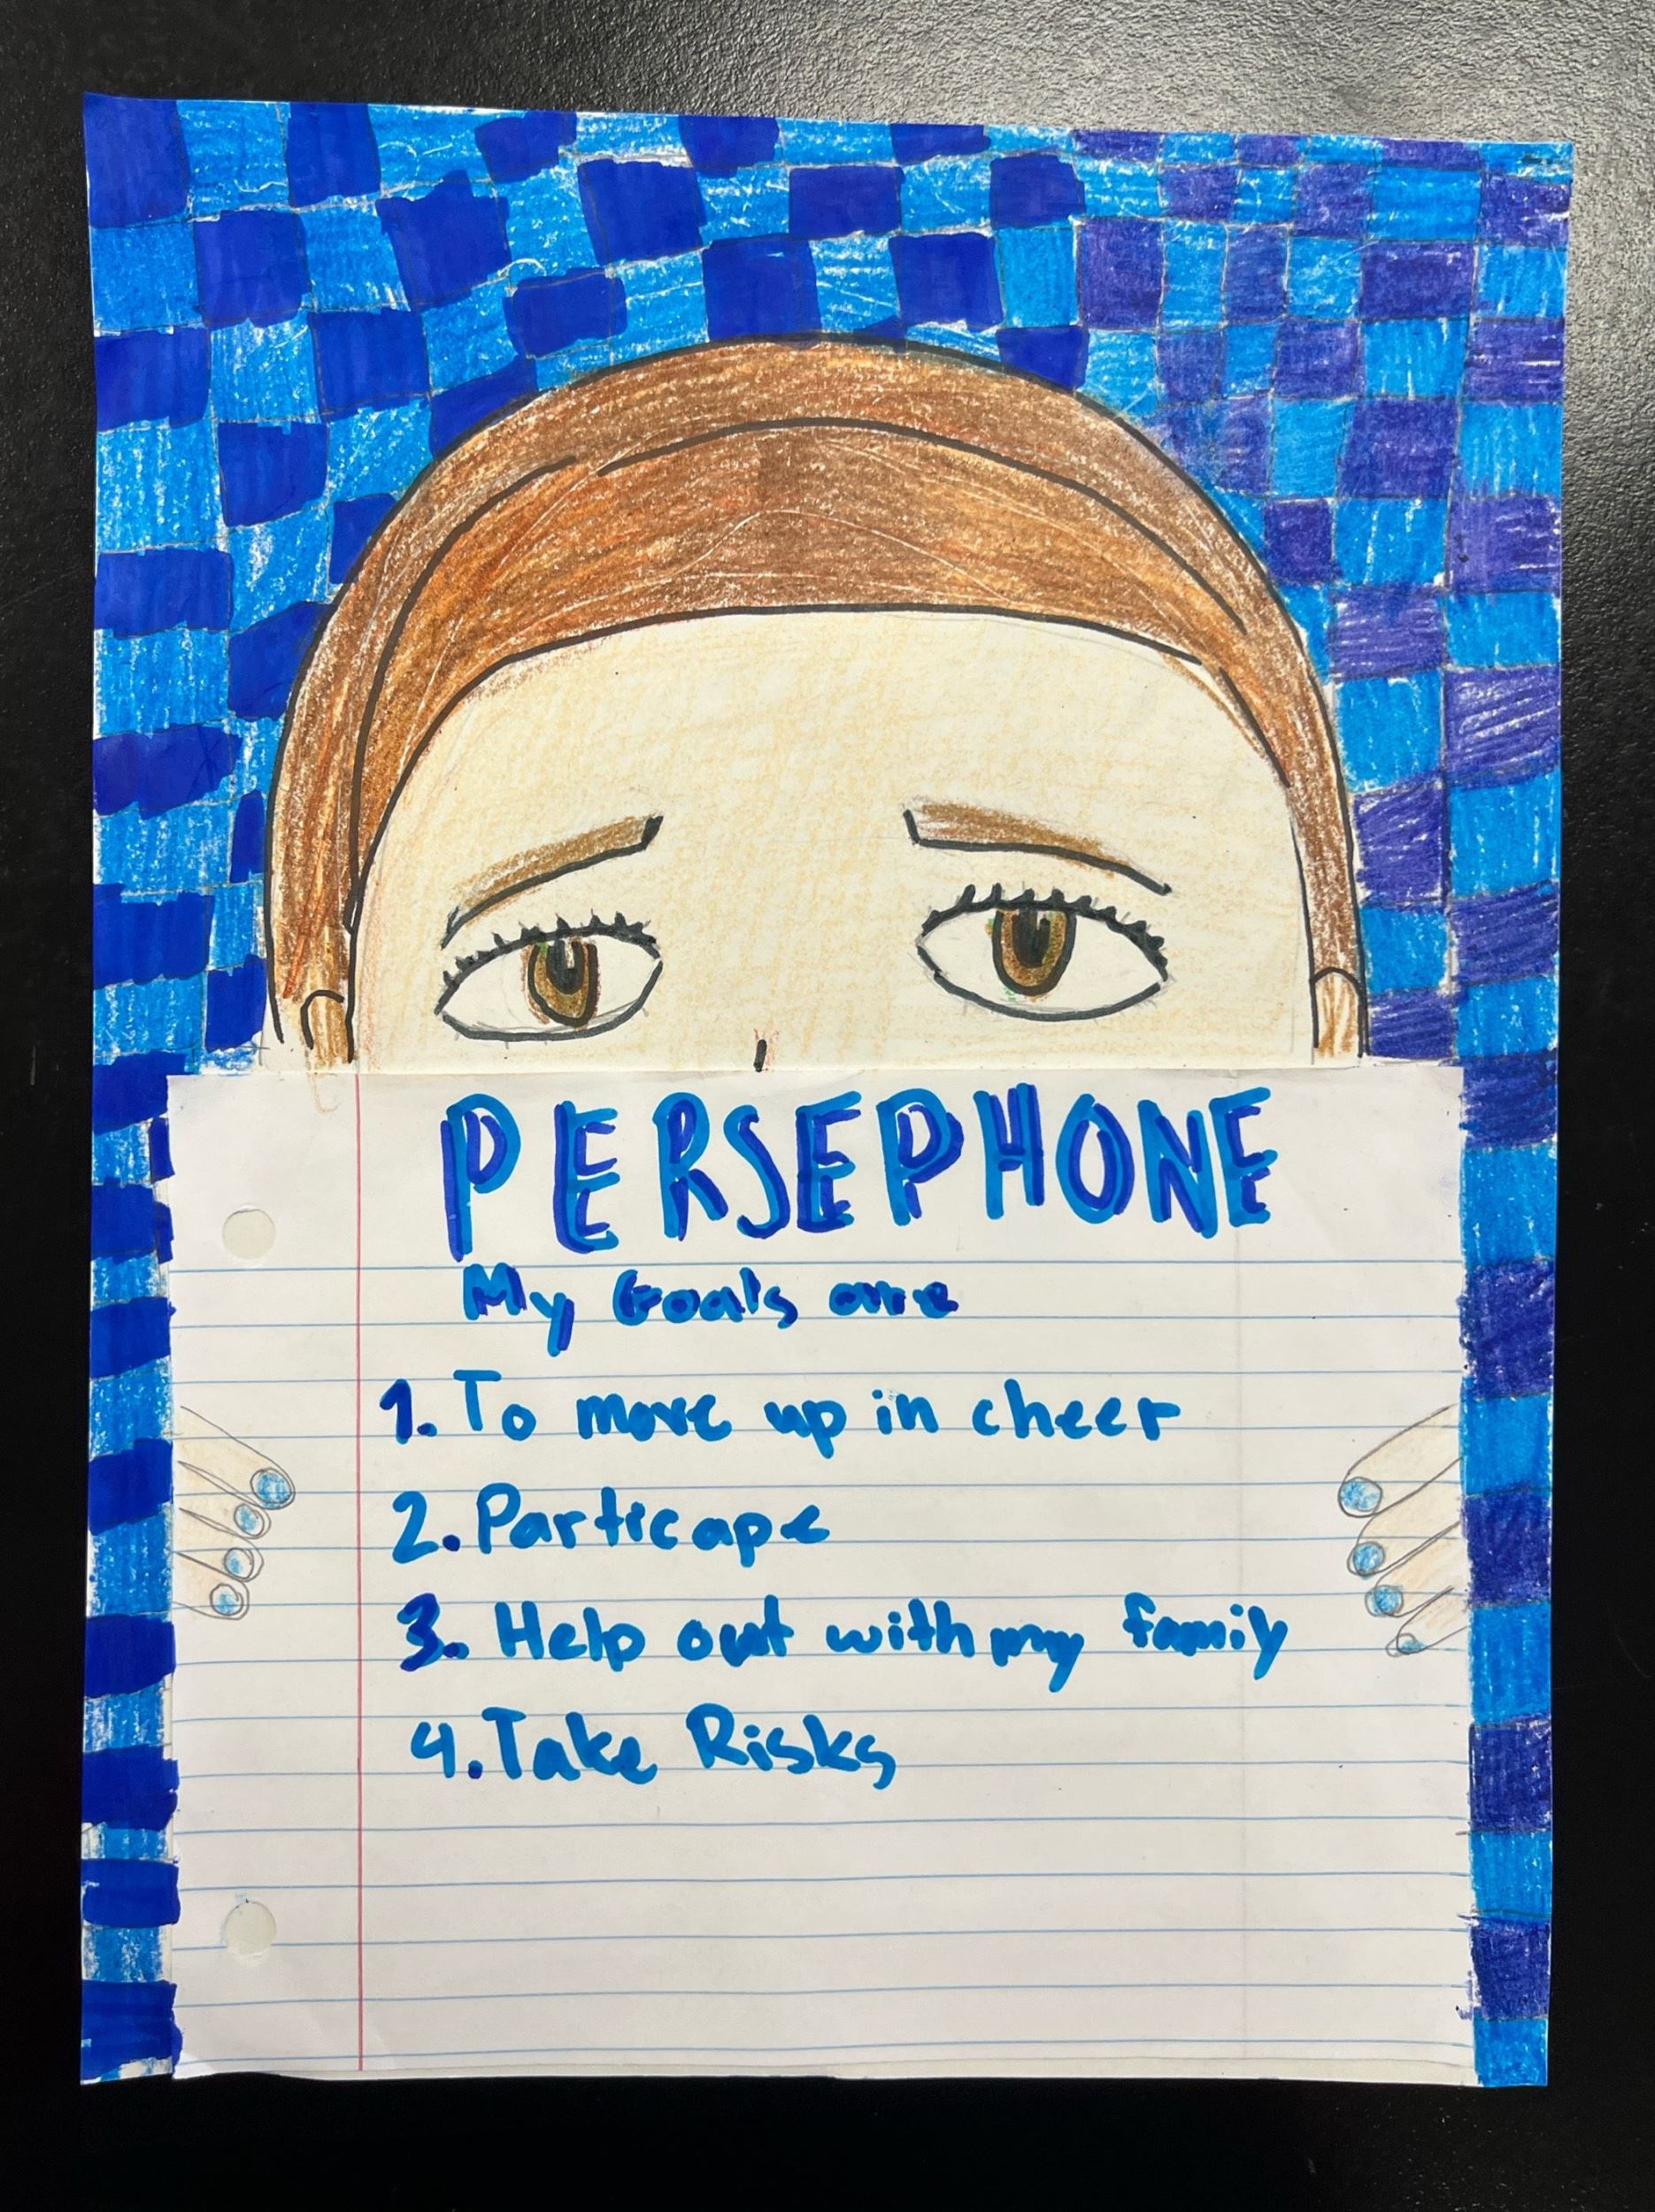 PERSEPHONE
My Goals are
1. To move up in cheer
2. Particape
3. Help out with my family
4. Take Risks